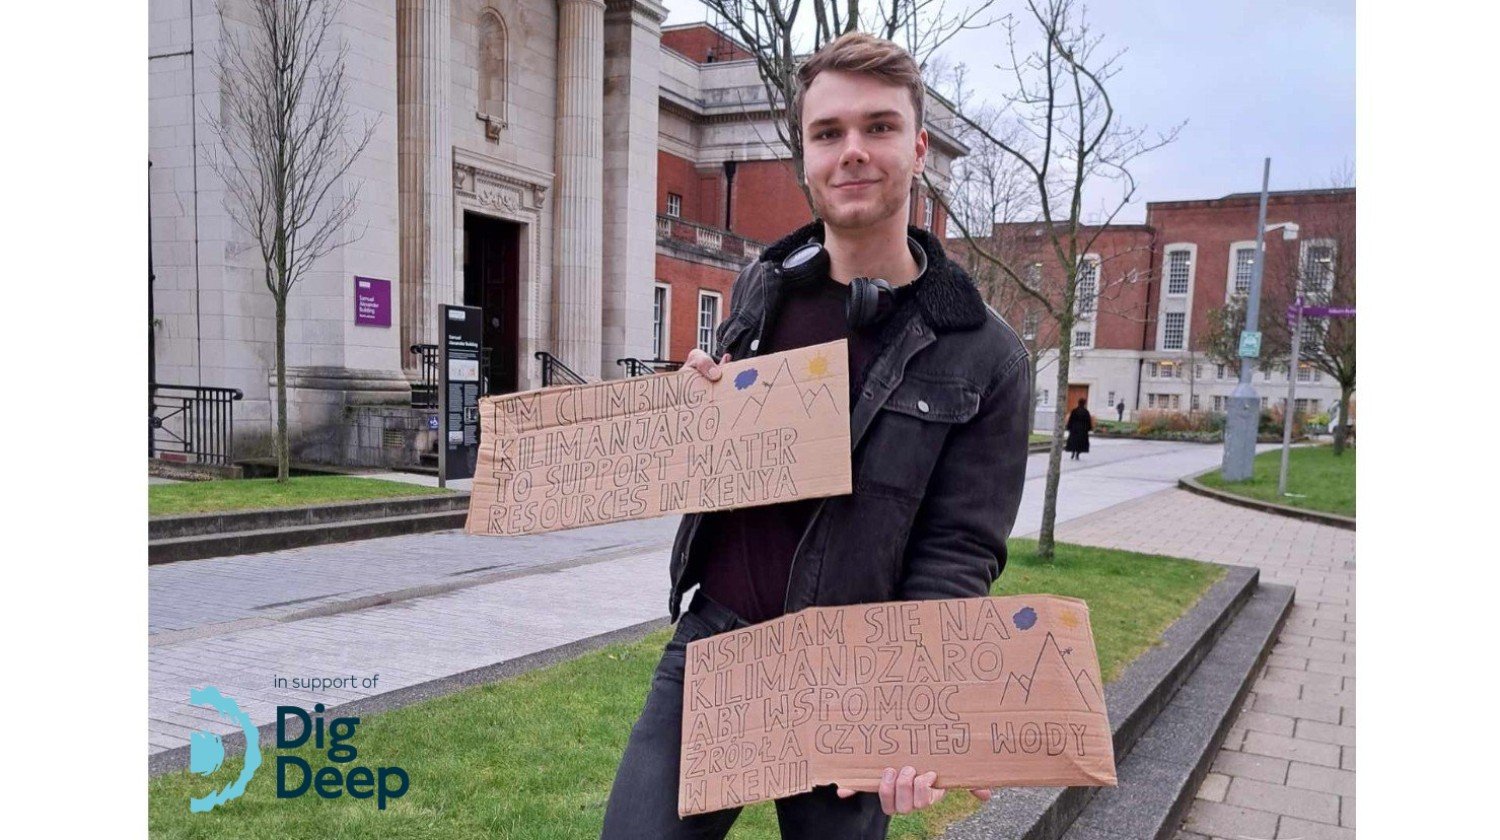 Samuel
Alexander
Building
Samuel
Alexander Building
I'M CLIMBING
KILIMANJARO
TO SUPPORT WATER
RESOURCES IN KENYA
WSPINAM SIĘ NA
KILIMANDŻARO
ABY WSPOMÓC
ŹRÓDŁA CZYSTEJ WODY
W KENII
in support of
Dig
Deep